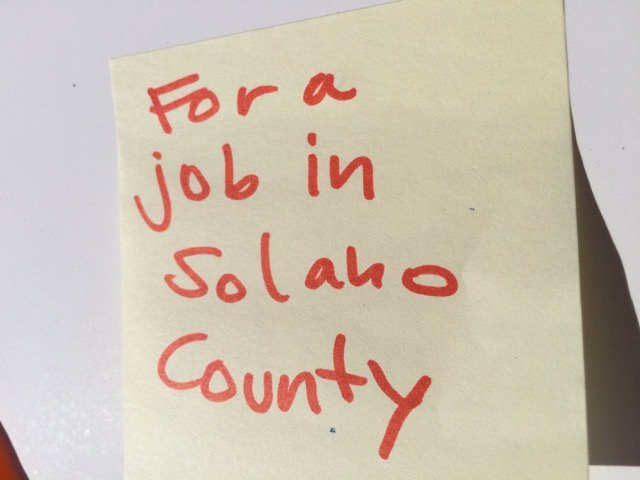 For a
job in
Solano
County